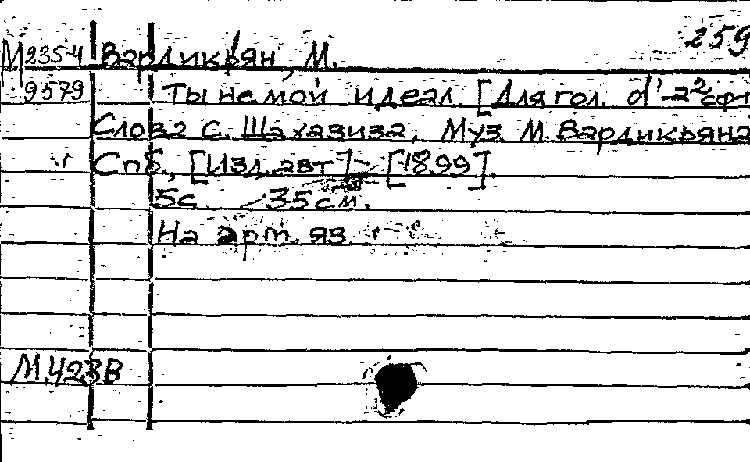 259
М 235-4 Вардикьян, М.
9579 Ты не мой идеал. [Для гол. d'-a² с ф-п
Слова С. Шахазиза, Муз М. Вардикьяна
Спб., [Изд. авт] [1899].
5 с 35 см.
На арм. яз.
М.423В